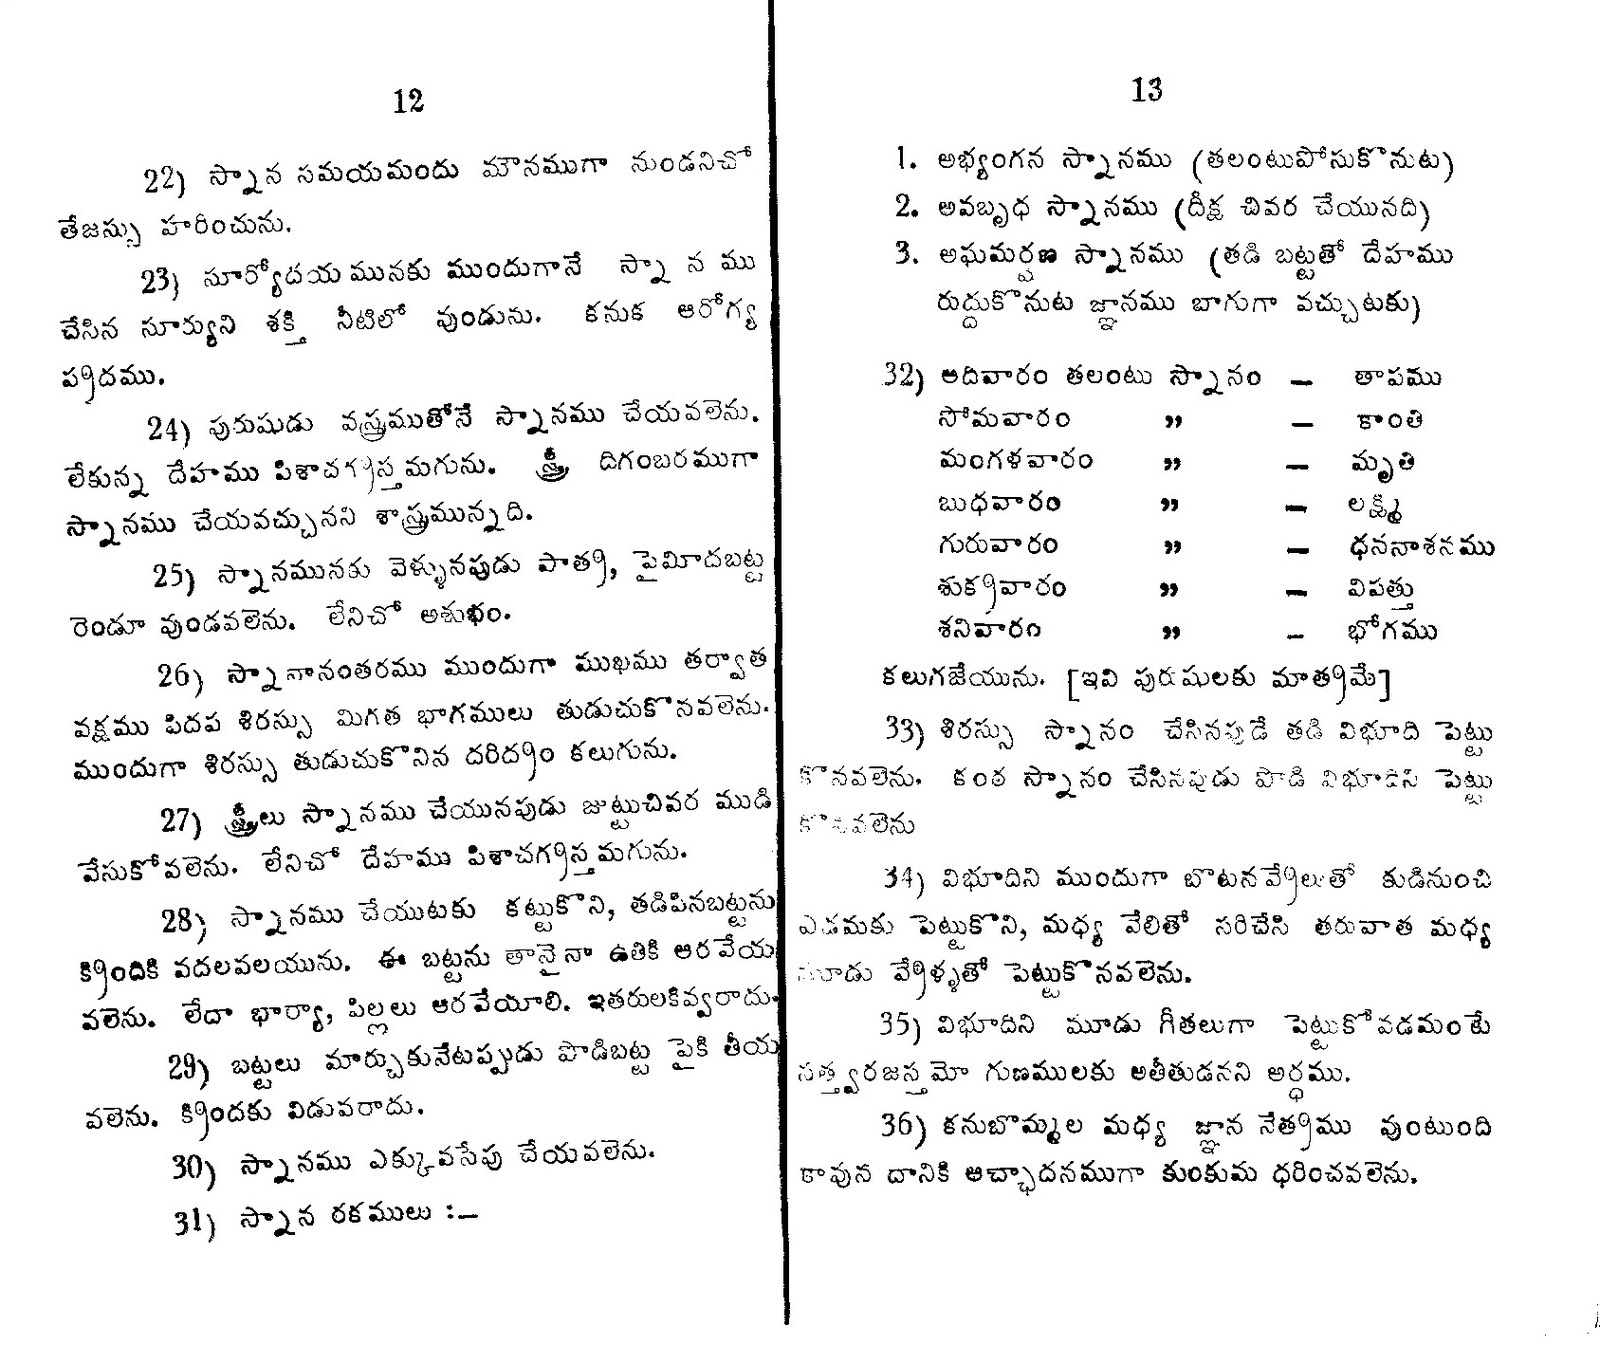 12
22) స్నాన సమయమందు మౌనముగా నుండనిచో
తేజస్సు హరించును.
23) సూర్యోదయ మునకు ముందుగానే స్నా న ము
చేసిన సూర్యుని శక్తి నీటిలో వుండును. కనుక ఆరోగ్య
ప్రదము.
24) పురుషుడు వస్త్రముతోనే స్నానము చేయవలెను.
లేకున్న దేహము పిశాచగ్రస్త మగును. స్త్రీ దిగంబరముగా
స్నానము చేయవచ్చునని శాస్త్రమున్నది.
25) స్నానమునకు వెళ్ళునపుడు పాత్ర, పైమీదబట్ట
రెండూ వుండవలెను. లేనిచో అశుభం.
26) స్నానానంతరము ముందుగా ముఖము తర్వాత
వక్షము పిదప శిరస్సు మిగత భాగములు తుడుచుకొనవలెను.
ముందుగా శిరస్సు తుడుచుకొనిన దరిద్రం కలుగును.
27) స్త్రీలు స్నానము చేయునపుడు జుట్టుచివర ముడి
వేసుకోవలెను. లేనిచో దేహము పిశాచగ్రస్త మగును.
28) స్నానము చేయుటకు కట్టుకొని, తడిపినబట్టను
క్రిందికి వదలవలయును. ఈ బట్టను తానైనా ఉతికి ఆరవేయ
వలెను. లేదా భార్యా, పిల్లలు ఆరవేయాలి. ఇతరులకివ్వరాదు.
29) బట్టలు మార్చుకునేటప్పుడు పొడిబట్ట పైకి తీయ
వలెను. క్రిందకు విడువరాదు.
30) స్నానము ఎక్కువసేపు చేయవలెను.
31) స్నాన రకములు :—
13
1. అభ్యంగన స్నానము (తలంటుపోసుకొనుట)
2. అవబృధ స్నానము (దీక్ష చివర చేయునది)
3. అఘమర్షణ స్నానము (తడి బట్టతో దేహము
రుద్దుకొనుట జ్ఞానము బాగుగా వచ్చుటకు)
32) ఆదివారం తలంటు స్నానం — తాపము
సోమవారం ,, — కాంతి
మంగళవారం ,, — మృతి
బుధవారం ,, — లక్ష్మి
గురువారం ,, — ధననాశనము
శుక్రవారం ,, — విపత్తు
శనివారం ,, — భోగము
కలుగజేయును. [ఇవి పురుషులకు మాత్రమే]
33) శిరస్సు స్నానం చేసినపుడే తడి విభూది పెట్టు
కొనవలెను. కంఠ స్నానం చేసినపుడు పొడి విభూదిని పెట్టు
కొనవలెను
34) విభూదిని ముందుగా బొటనవ్రేలుతో కుడినుంచి
ఎడమకు పెట్టుకొని, మధ్య వేలితో సరిచేసి తరువాత మధ్య
మూడు వ్రేళ్ళతో పెట్టుకొనవలెను.
35) విభూదిని మూడు గీతలుగా పెట్టుకోవడమంటే
సత్త్వరజస్తమో గుణములకు అతీతుడనని అర్ధము.
36) కనుబొమ్మల మధ్య జ్ఞాన నేత్రము వుంటుంది
కావున దానికి ఆచ్ఛాదనముగా కుంకుమ ధరించవలెను.